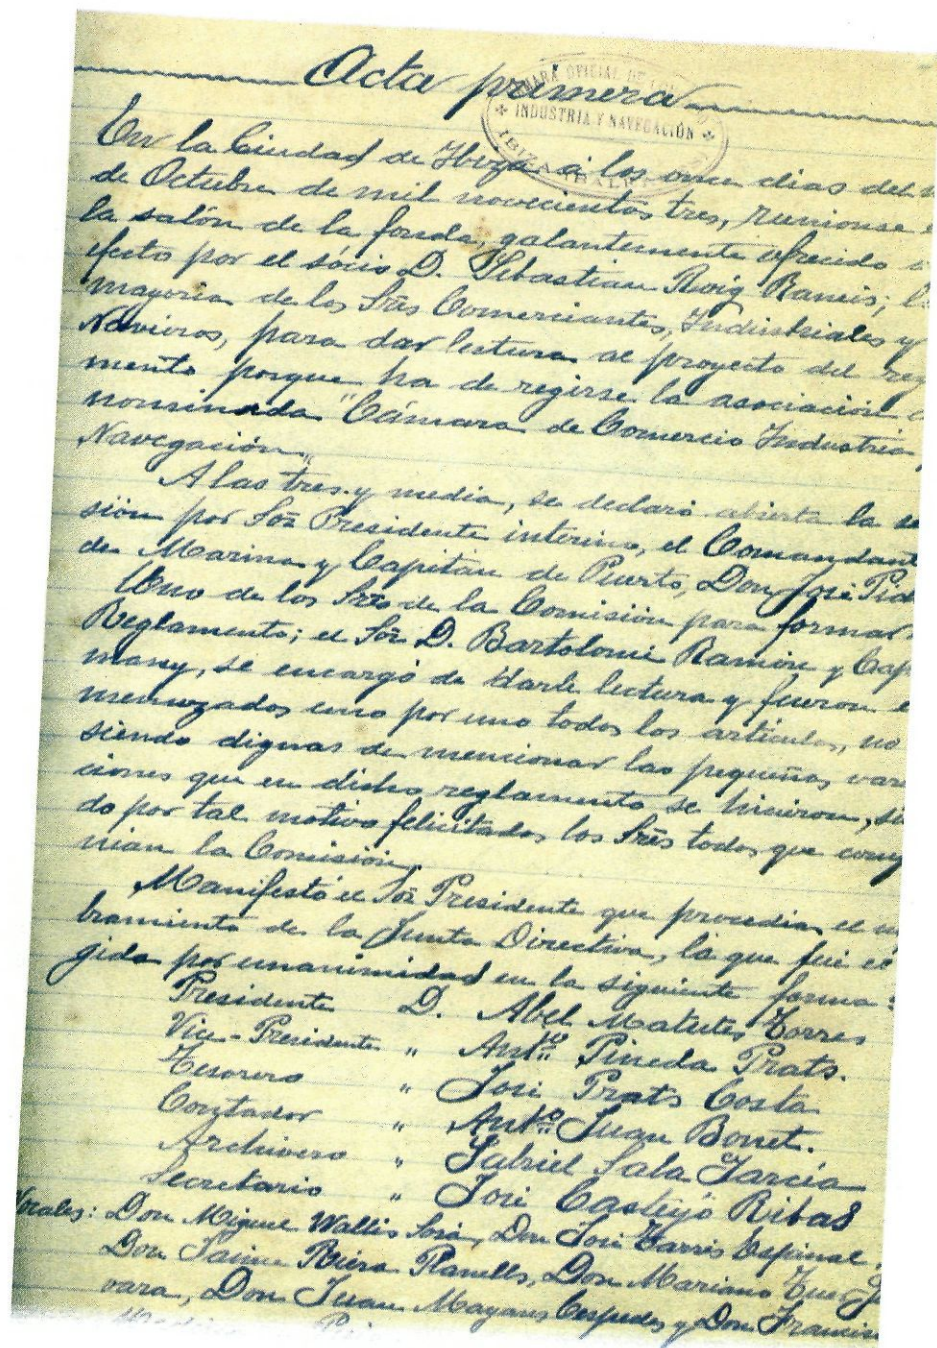 Acta primera
CÁMARA OFICIAL DE
INDUSTRIA Y NAVEGACIÓN
IBIZA (BALEARES)
En la Ciudad de Ibiza á los once dias del
de Octubre de mil novecientos tres, reunionse
la salón de la fonda, galantemente ofrecido
efecto por el sócio D. Sebastian Roig Rameis;
mayoria de los Srãs Comerciantes, Industriales y
Navieros, para dar lectura al proyecto del reg
mento porque ha de regirse la asociación
nominada "Cámara de Comercio Industria
Navegación„
A las tres y media, se declaró abierta la se
sión por Sor Presidente interino, el Comandant
de Marina y Capitan de Puerto, Don José
Uno de los Srês de la Comisión para formar
Reglamento; el Sor D. Bartolomé Ramón y Cap
many, se encargó de darle lectura y fueron
menuzados uno por uno todos los artículos, no
siendo dignas de mencionar las pequeñas vari
ciones que en dicho reglamento se hicieron, si
do por tal motivo felicitados los Srês todos que comp
nian la Comisión.
Manifestó el Sor Presidente que procedia el
bramiento de la Junta Directiva, la que fué el
gida por unanimidad en la siguiente forma:
Presidente D. Abel Matutes Torres
Vice-Presidente „ Antº Pineda Prats.
Tesorero „ José Prats Costa
Contador „ Antº Juan Bonet.
Archivero „ Gabriel Sala García
Secretario „ José Castelló Ribas
Vocales: Don Miguel Wallis Soria, Don José Tarrés Espinal,
Don Jaime Riera Planells, Don Mariano Tuells
vara, Don Juan Mayans Cespedes y Don Francis